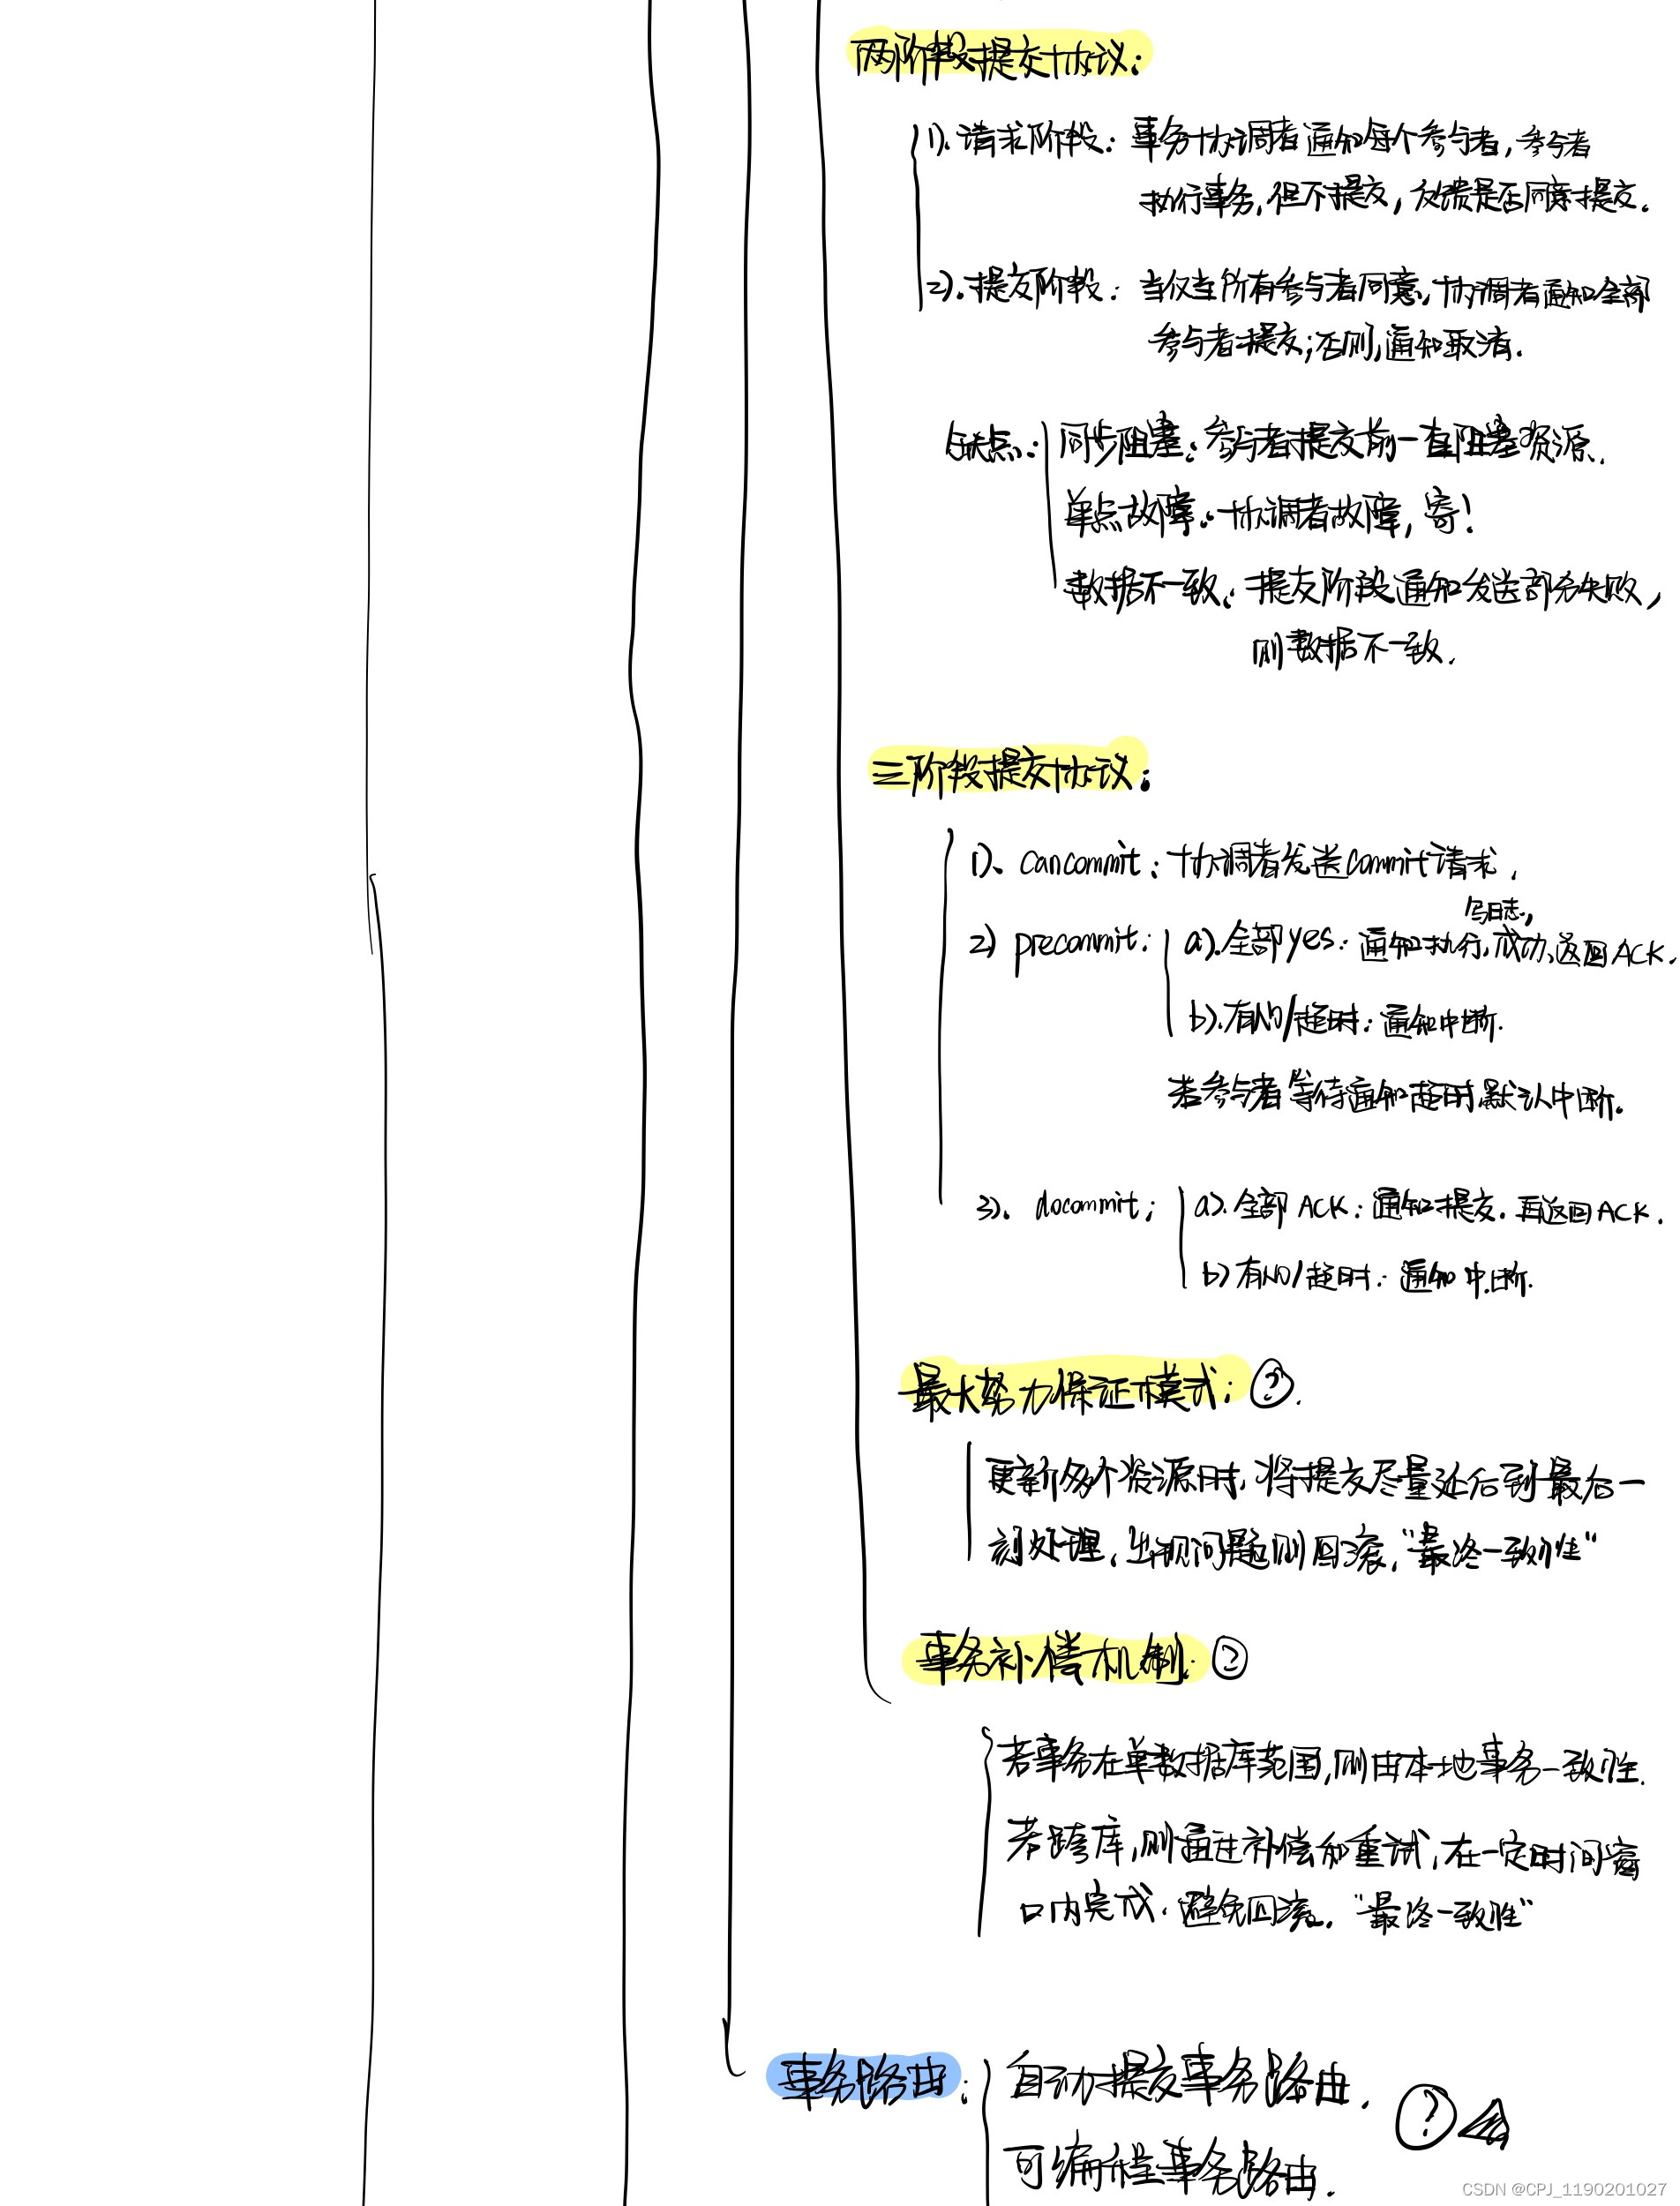 两阶段提交协议:
1). 请求阶段: 事务协调者通知每个参与者, 参与者
执行事务, 但不提交, 反馈是否同意提交.
2). 提交阶段: 当仅当所有参与者同意, 协调者通知全部
参与者提交; 否则, 通知取消.
缺点: 同步阻塞: 参与者提交前一直阻塞资源.
单点故障: 协调者故障, 寄!
数据不一致: 提交阶段通知发送部分失败,
则数据不一致.
三阶段提交协议:
1)、cancommit: 协调者发送commit请求.
写日志,
2) precommit: a). 全部yes: 通知执行, 成功, 返回ACK.
b). 有NO/超时: 通知中断.
若参与者等待通知超时默认中断.
3). docommit: a). 全部ACK: 通知提交. 再返回ACK.
b) 有NO/超时: 通知中断.
最大努力保证模式: ?.
更新多个资源时, 将提交尽量延后到最后一
刻处理, 出现问题则回滚, “最终一致性"
事务补偿机制: ?
若事务在单数据库范围, 则由本地事务一致性.
若跨库, 则通过补偿和重试, 在一定时间窗
口内完成, 避免回滚. “最终一致性"
事务路由: 自动提交事务路由. ?
可编程事务路由.
CSDN @CPJ_1190201027